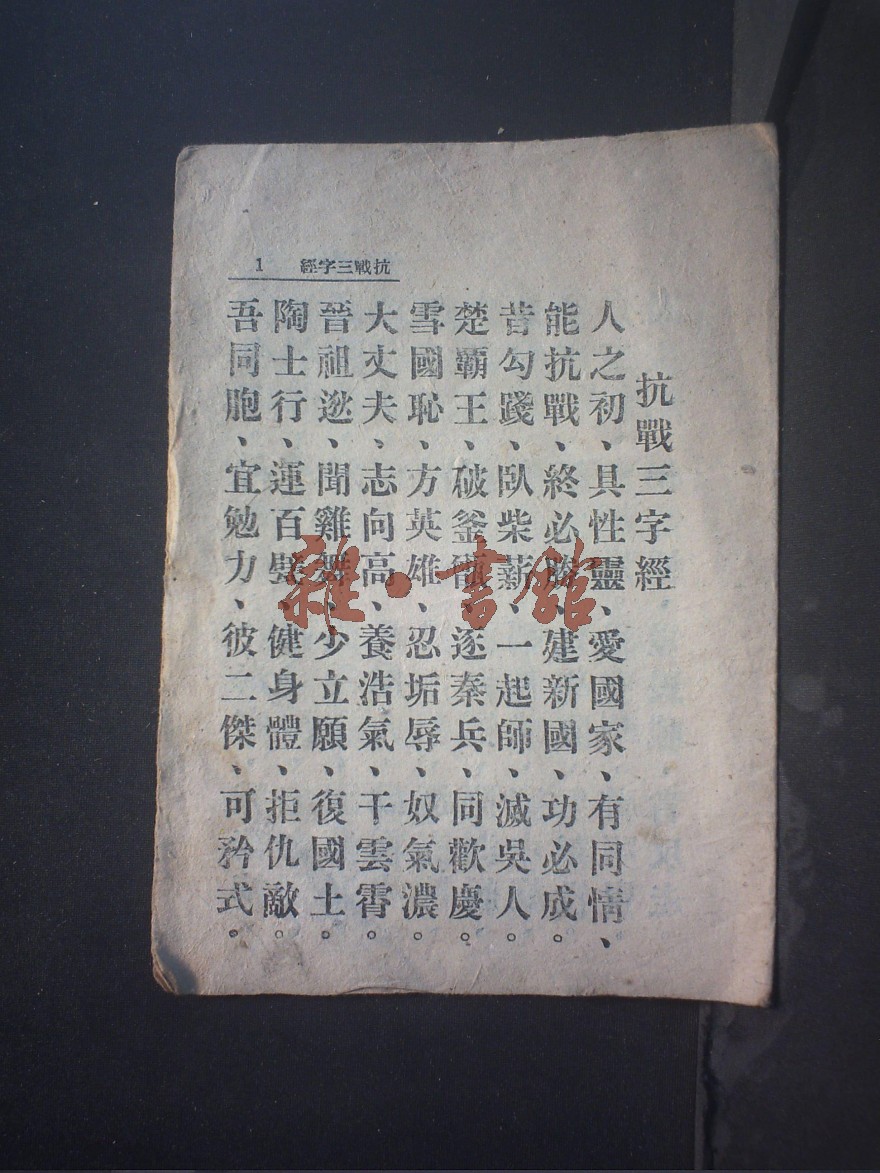 抗戰三字經 1
抗戰三字經
人之初、具性靈、愛國家、有同情、
能抗戰、終必勝、建新國、功必成。
昔勾踐、臥柴薪、一起師、滅吳人。
楚霸王、破釜甑、逐秦兵、同歡慶。
雪國恥、方英雄、忍垢辱、奴氣濃。
大丈夫、志向高、養浩氣、干雲霄。
晉祖逖、聞雞舞、少立願、復國土。
陶士行、運百甓、健身體、拒仇敵。
吾同胞、宜勉力、彼二傑、可矜式。
雜·書館